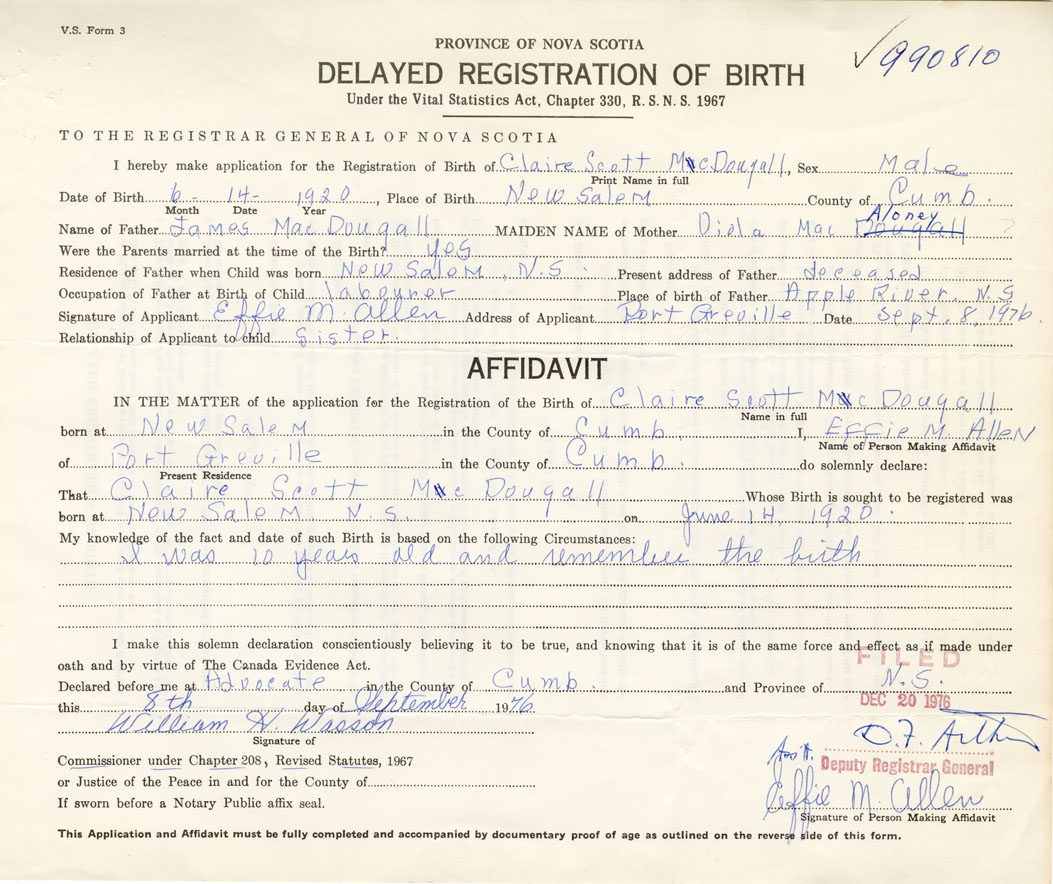 V.S. Form 3
990810
PROVINCE OF NOVA SCOTIA
DELAYED REGISTRATION OF BIRTH
Under the Vital Statistics Act, Chapter 330, R.S.N.S. 1967
TO THE REGISTRAR GENERAL OF NOVA SCOTIA
I hereby make application for the Registration of Birth of Claire Scott MacDougall, Sex Male
Print Name in full
Date of Birth 6 - 14 - 1920, Place of Birth New Salem County of Cumb.
Month Date Year
Aloney
Name of Father James MacDougall MAIDEN NAME of Mother Diola Mac Dougall
Were the Parents married at the time of the Birth? yes
Residence of Father when Child was born New Salem, N.S. Present address of Father deceased
Occupation of Father at Birth of Child labourer Place of birth of Father Apple River, N.S
Signature of Applicant Effie M. Allen Address of Applicant Port Greville Date Sept. 8, 1976.
Relationship of Applicant to child sister.
AFFIDAVIT
IN THE MATTER of the application for the Registration of the Birth of Claire Scott MacDougall
Name in full
born at New Salem in the County of Cumb. I, Effie M. Allen
Name of Person Making Affidavit
of Port Greville in the County of Cumb. do solemnly declare:
Present Residence
That Claire Scott MacDougall Whose Birth is sought to be registered was
born at New Salem, N.S. on June 14, 1920.
My knowledge of the fact and date of such Birth is based on the following Circumstances:
I was 10 years old and remember the birth
I make this solemn declaration conscientiously believing it to be true, and knowing that it is of the same force and effect as if made under
oath and by virtue of The Canada Evidence Act.
FILED
Declared before me at Advocate in the County of Cumb. and Province of N.S.
DEC 20 1976
this 8th day of September 1976
William H. Wasson
Signature of
D.F. Arthur
Commissioner under Chapter 208, Revised Statutes, 1967
Ass't. Deputy Registrar General
or Justice of the Peace in and for the County of
Effie M. Allen
If sworn before a Notary Public affix seal.
Signature of Person Making Affidavit
This Application and Affidavit must be fully completed and accompanied by documentary proof of age as outlined on the reverse side of this form.